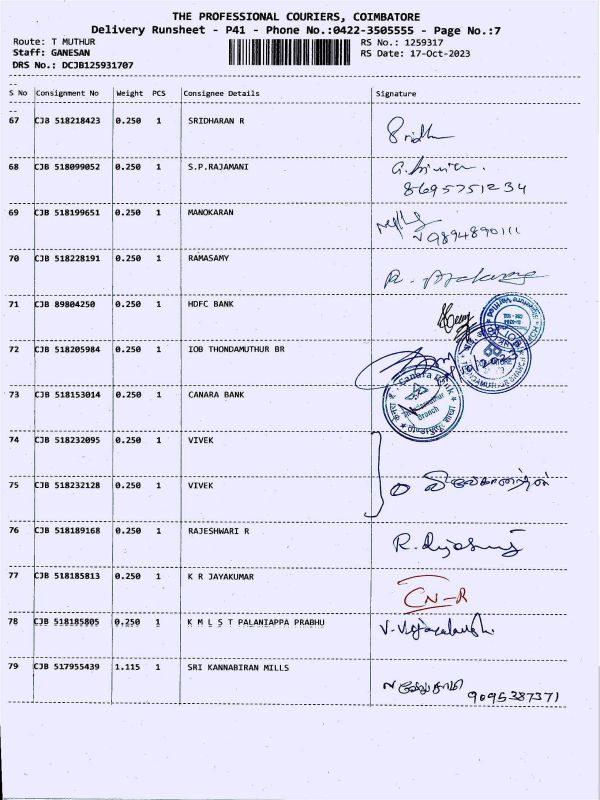 THE PROFESSIONAL COURIERS, COIMBATORE
Delivery Runsheet - P41 - Phone No.:0422-3505555 - Page No.:7
Route: T MUTHUR RS No.: 1259317
Staff: GANESAN RS Date: 17-Oct-2023
DRS No.: DCJB125931707
S No Consignment No Weight PCS Consignee Details Signature
67 CJB 518218423 0.250 1 SRIDHARAN R
Sridh
68 CJB 518099052 0.250 1 S.P.RAJAMANI
8695751234
69 CJB 518199651 0.250 1 MANOKARAN
9894890111
70 CJB 518228191 0.250 1 RAMASAMY
71 CJB 89804250 0.250 1 HDFC BANK
72 CJB 518205984 0.250 1 IOB THONDAMUTHUR BR
73 CJB 518153014 0.250 1 CANARA BANK
Canara Bank
Branch
74 CJB 518232095 0.250 1 VIVEK
75 CJB 518232128 0.250 1 VIVEK
76 CJB 518189168 0.250 1 RAJESHWARI R
77 CJB 518185813 0.250 1 K R JAYAKUMAR
CN-R
78 CJB 518185805 0.250 1 K M L S T PALANIAPPA PRABHU
V. Vijayalakshi
79 CJB 517955439 1.115 1 SRI KANNABIRAN MILLS
9095387371